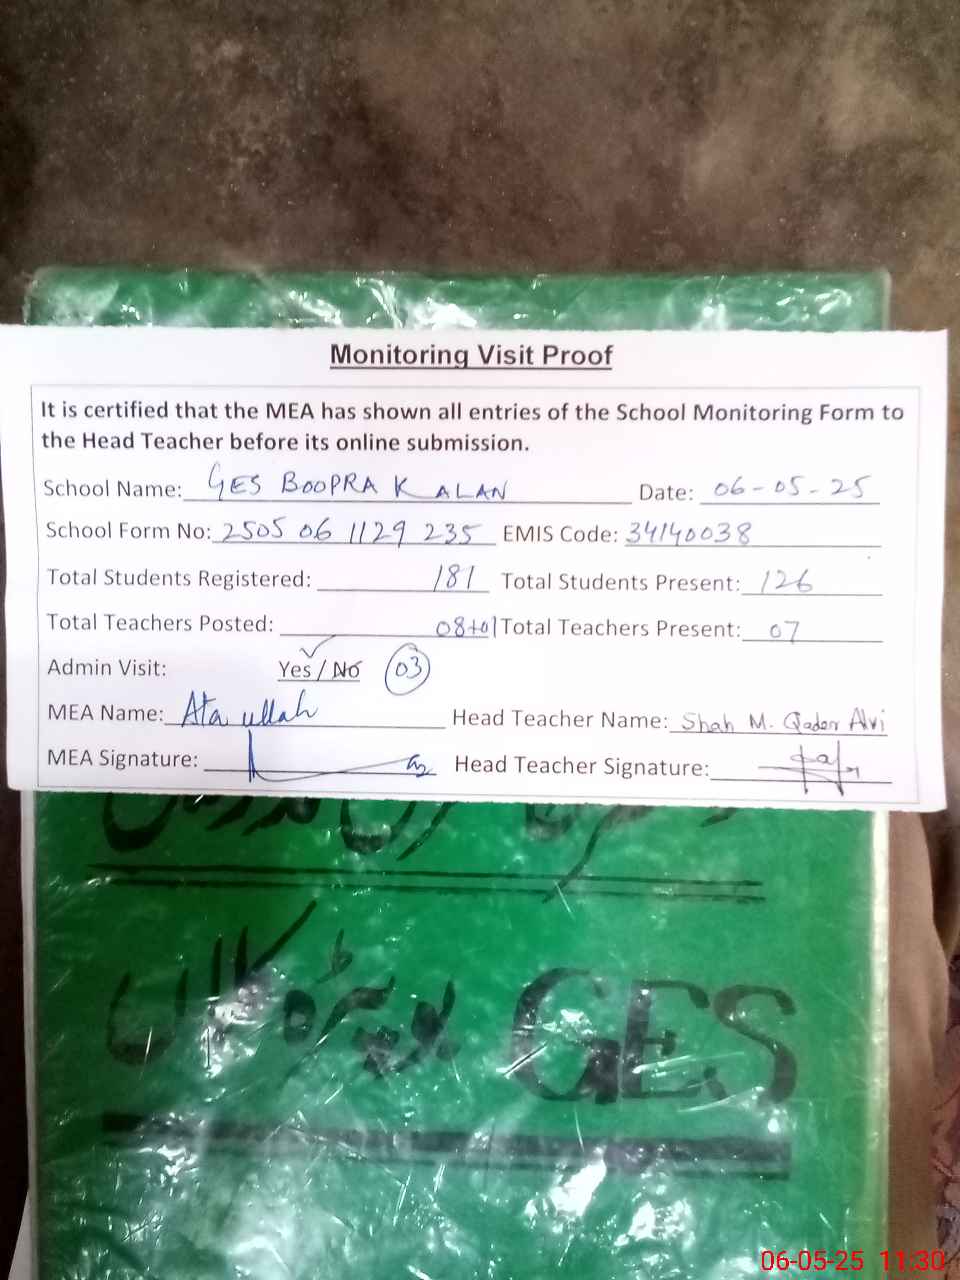 Monitoring Visit Proof
It is certified that the MEA has shown all entries of the School Monitoring Form to
the Head Teacher before its online submission.
School Name: GES BOOPRA KALAN Date: 06-05-25
School Form No: 2505 06 1129 235 EMIS Code: 34140038
Total Students Registered: 181 Total Students Present: 126
Total Teachers Posted: 08+01 Total Teachers Present: 07
Admin Visit: Yes / No 03
MEA Name: Ata ullah Head Teacher Name: Shah M. Qader Alvi
MEA Signature: Head Teacher Signature:
GES بوپڑہ کلاں
06-05-25 11:30